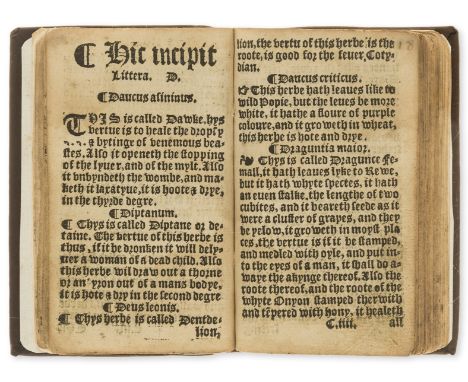 ¶ Hic incipit
Littera. D.
¶ Daucus asininus.
THIS is called Dawke, hys
vertue is to heale the dropsy
& bytinge of venemous bea-
stes. Also it openeth the stopping
of the lyuer, and of the mylt. Also
it vnbyndeth the wombe, and ma-
keth it laxatyue, it is hoote & drye,
in the thyrde degre.
¶ Diptanum.
¶ Thys is called Diptane or de-
taine. The vertue of this herbe is
thus, if it be dronken it will dely-
uer a woman of a dead child. Also
this herbe wil draw out a thorne
or an yron out of a mans body,
It is hote & dry in the second degre
¶ Deus leonis.
¶ Thys herbe is called Dentde-
lion,
lion, the vertu of this herbe is the
roote, is good for the feuer, Coty-
dian.
¶ Daucus criticus.
This herbe hath leaues like to
wild Popie, but the leues be more
white, it hath a floure of purple
coloure, and it groweth in wheat,
this herbe is hote and drye.
¶ Draguntia maior.
Thys is called Dragunce Fe-
mall, it hath leaues lyke to Rewe,
but it hath whyte spectes, it hath
an euen stalke, the lengthe of two
cubites, and it beareth seede as it
were a cluster of grapes, and they
be yelow, it groweth in moyst pla-
ces, the vertue is if it be stamped,
and medled with oyle, and put in-
to the eyes of a man, it shall do a-
waye the akynge thereof. Also the
roote thereof, and the roote of the
whyte Onyon stamped therwith
and tēpered with hony, it healeth
C.iiii. all